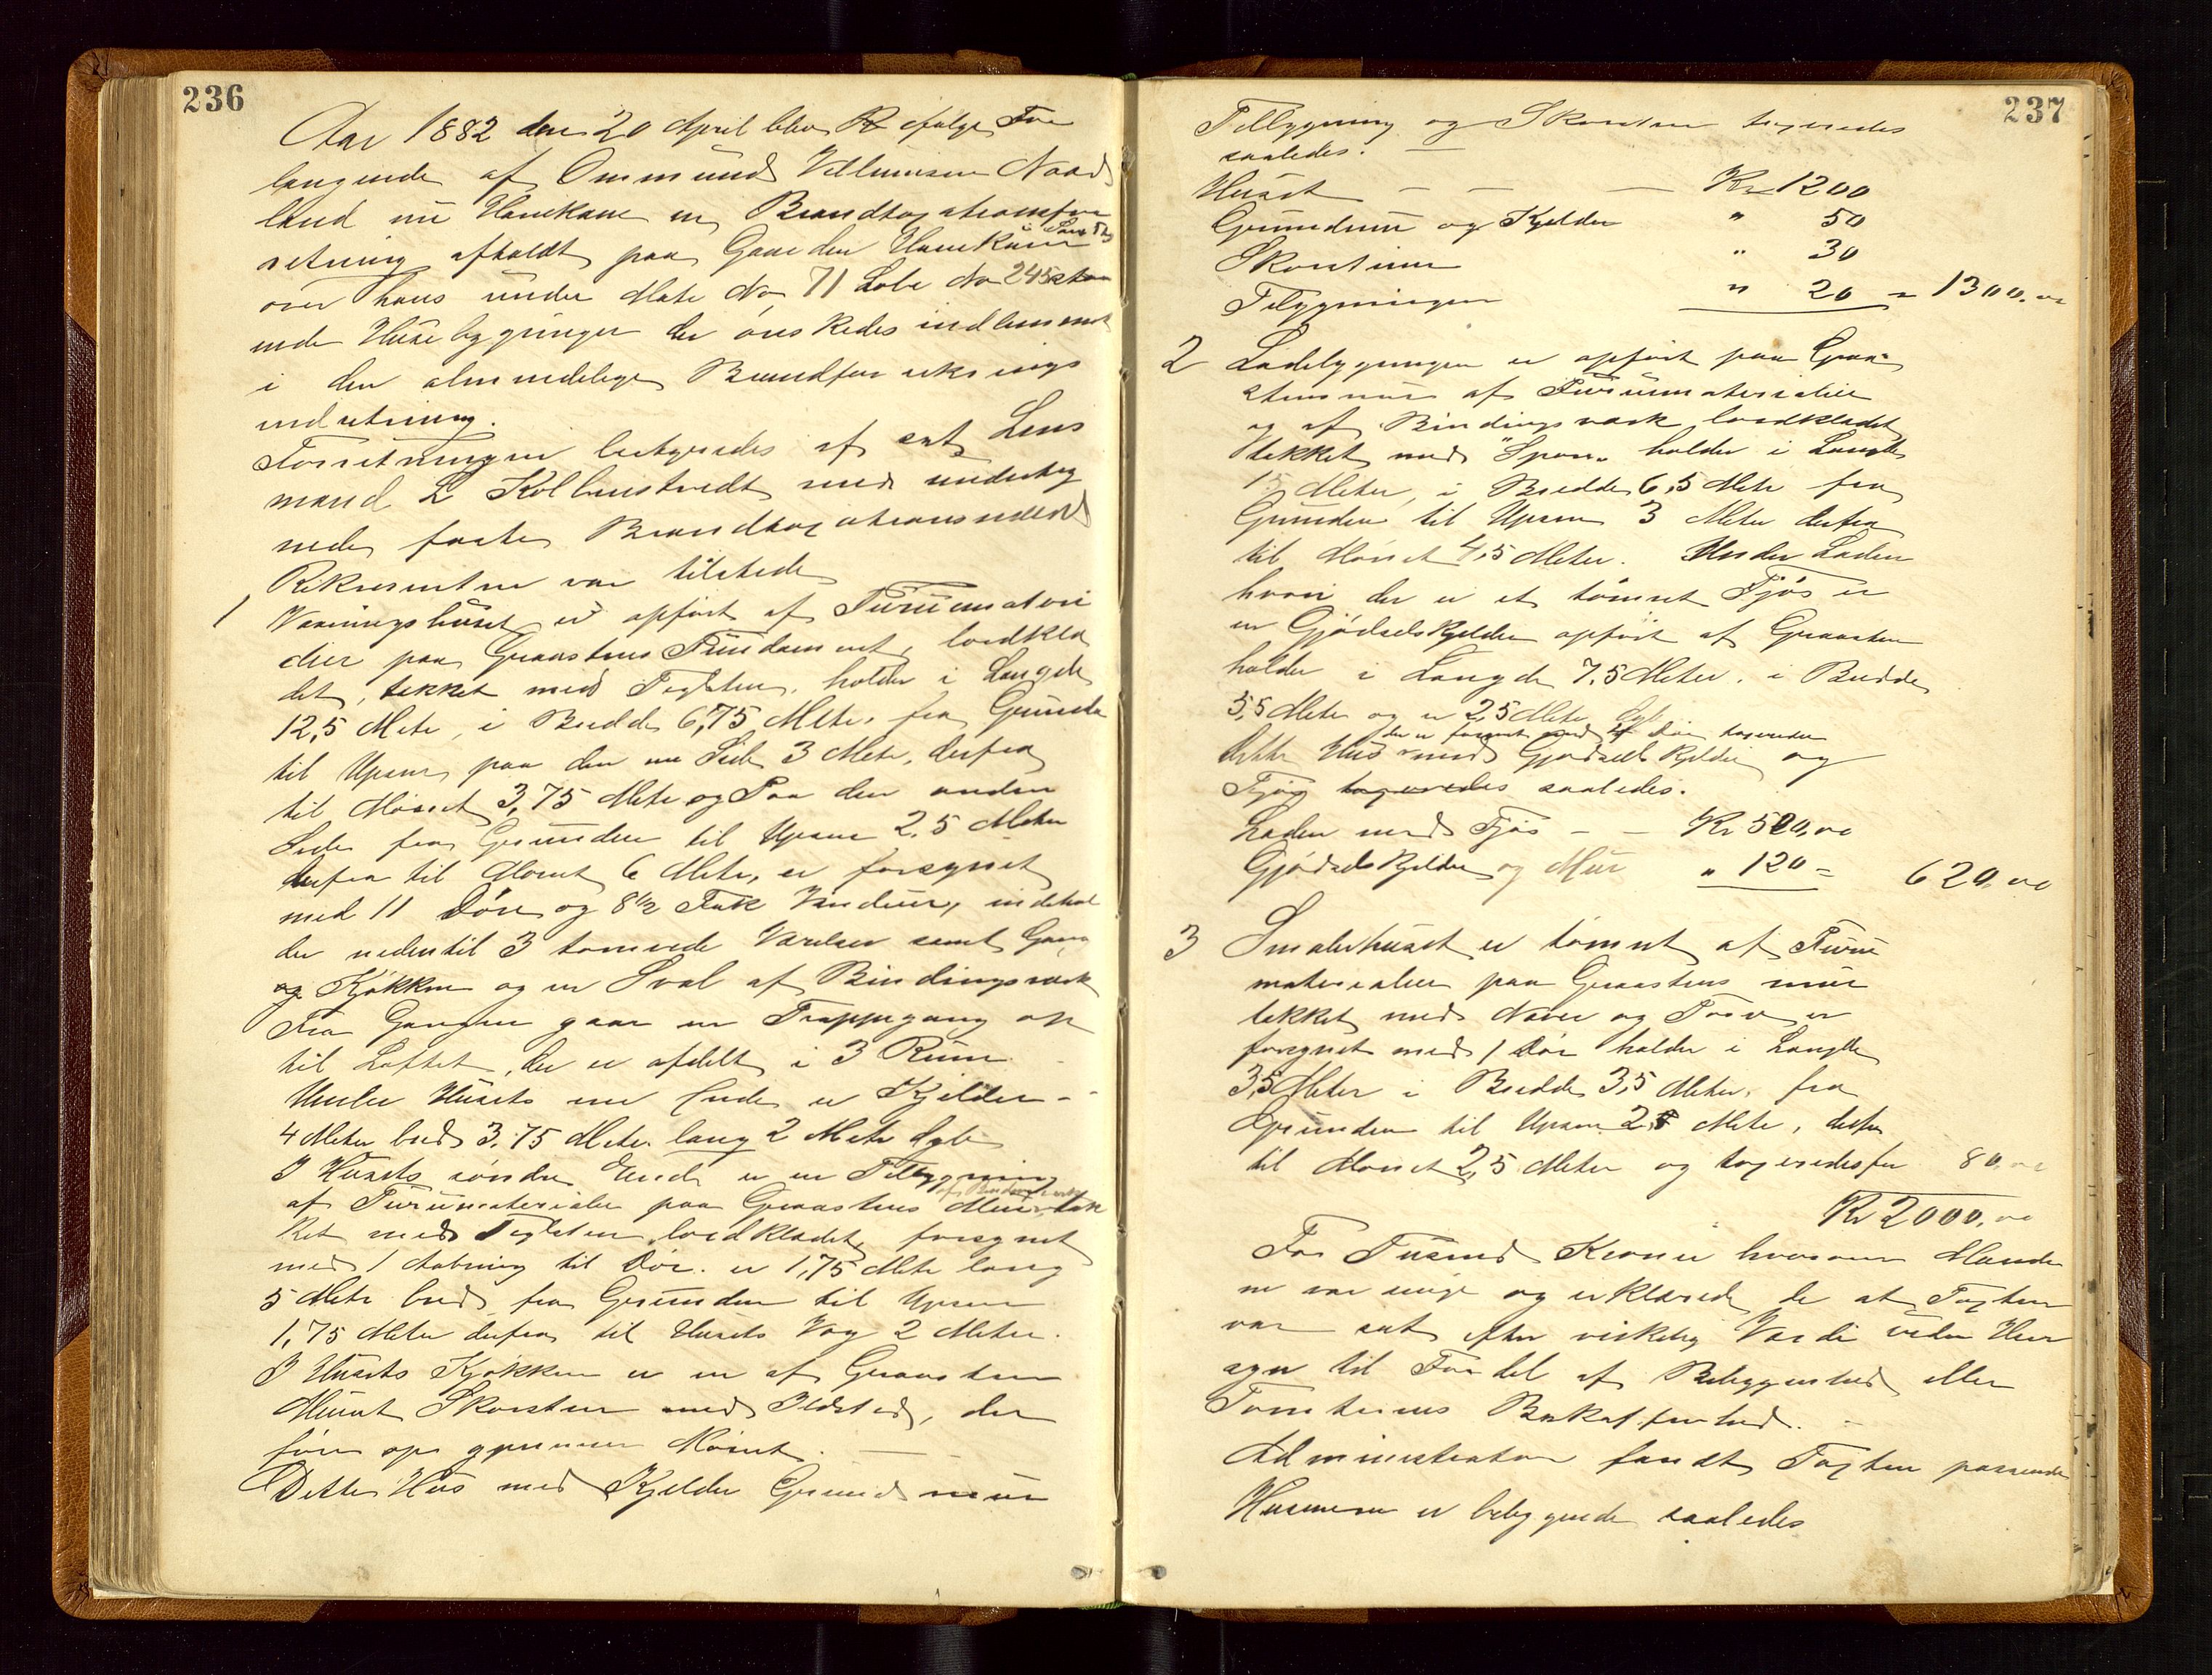 236
Aar 1882 den 20 April blev ifølge For
langende af Ommund Villumsen Nord
land nu Hanekam en Brandtaxationsfor
retning afholdt paa Gaarden Hanekam
over hans under Matr No 71 Løbe No 245 staa
ende Huse bygninger der ønskedes indlemmet
i den almindelige Brandforsikrings
indretning.
Forretningen bestyredes af cst Lens
mand L Kolbenstvedt med underteg
nede faste Brandtaxationsmænd
Rekvirenten var tilstede
1 Vaaningshuset er opført af Furumateri
alier paa Graastens Fundament, bordklæ
det, tækket med Teglsten, holder i Længde
12,5 Meter, i Bredde 6,75 Meter, fra Grunden
til Upsen paa den ene Side 3 Meter, derfra
til Mønet 3,75 Meter og Paa den anden
Side fra Grunden til Upsen 2,5 Meter
derfra til Mønet 6 Meter, er forsynet
med 11 Døre og 8 1/2 Fag Vinduer, indehol
der nedentil 3 tømrede Værelser samt Gang
og Kjøkken og en Sval af Bindingsværk
Fra Gangen gaar en Trappegang op
til Loftet, der er afdelt i 3 Rum
Under Husets ene Ende er Kjelder -
4 Meter bred 3,75 Meter lang 2 Meter dyb
I Husets søndre Ende er en Tilbygning
af Bindingsværk
af Furumaterialier paa Graastens Mur tæk
ket med Teglsten bordklædet, forsynet
med 1 Aabning til Dør. er 1,75 Meter lang
5 Meter bred fra Grunden til Upsen
1,75 Meter derfra til Husets Væg 2 Meter.
I Husets Kjøkken er en af Graasten
Muret Skorsten med Ildsted, der
fører op gjennem Mønet. —
Dette Hus med Kjelder Grundmur
237
Tilbygning og Skorsten taxeredes
saaledes. —
Huset — — — Kr 1200
Grundmur og Kjelder " 50
Skorstenen " 30
Tilbygningen " 20 = 1300,00
2 Ladebygningen er opført paa Graa-
stensmur af Furumaterialier
og af Bindingsværk bordklædet
tækket med Spon. holder i Længde
15 Meter, i Bredde 6,5 Meter fra
Grunden til Upsen 3 Meter derfra
til Mønet 4,5 Meter. Under Laden
hvori der er et tømret Fjøs er
en Gjødselskjelder opført af Graasten
holder i Længde 7,5 Meter, i Bredde
5,5 Meter og er 2,5 Meter dyb
der er forsynet med Dør taxeredes
dette Hus med Gjødselskjelder og
Fjøs taxeredes saaledes.
Laden med Fjøs - — Kr 500,00
Gjødselskjelder og Mur " 120 = 620,00
3 Smalehuset er tømret af Furu
materialier paa Graastens mur
tækket med Næver og Torv er
forsynet med 1 Dør holder i Længde
3,5 Meter i Bredde 3,5 Meter, fra
Grunden til Upsen 2 Meter, derfra
til Mønet 2,5 Meter og taxeredes for 80,00
Kr 2000,00
For Tusend Kroner hvorom Mænde
ne var enige og erklærede de at Taxten
var sat efter virkelig Værdi uden Hen
syn til Fordel af Beliggenhed eller
Tomtens Beskaffenhed. —
Administrator fandt Taxten passende
Husene er beliggende saaledes